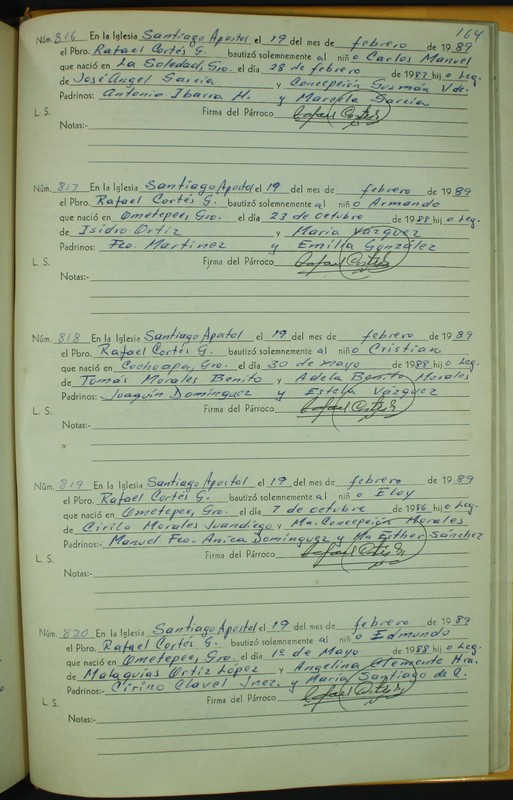 164
Núm. 816 En la Iglesia Santiago Apostol el 19 del mes de febrero de 1989
el Pbro. Rafael Cortés G. bautizó solemnemente al niño Carlos Manuel
que nació en La Soledad, Gro. el día 28 de febrero de 1987 hijo Leg.
de José Angel Garcia y Concepción Guzmán V de.
Padrinos: Antonio Ibarra H. y Marcela Garcia
L. S. Firma del Párroco Rafael Cortés G
Notas:
Núm. 817 En la Iglesia Santiago Apostol el 19 del mes de febrero de 1989
el Pbro. Rafael Cortés G. bautizó solemnemente al niño Armando
que nació en Ometepec, Gro. el día 23 de octubre de 1988 hijo Leg.
de Isidro Ortiz y Maria Vázquez
Padrinos: Fco. Martinez y Emilia González
L. S. Firma del Párroco Rafael Cortés G
Notas:-
Núm. 818 En la Iglesia Santiago Apostol el 19 del mes de febrero de 1989
el Pbro. Rafael Cortés G. bautizó solemnemente al niño Cristian
que nació en Cochoapa, Gro. el día 30 de mayo de 1988 hijo Leg.
de Tomás Morales Benito y Adela Benito Morales
Padrinos: Joaquín Dominguez y Estela Vázquez
L. S. Firma del Párroco Rafael Cortés G
Notas:
Núm. 819 En la Iglesia Santiago Apostol el 19 del mes de febrero de 1989
el Pbro. Rafael Cortés G. bautizó solemnemente al niño Eloy
que nació en Ometepec, Gro. el día 7 de octubre de 1986 hijo Leg.
de Cirilo Morales Juandiego y Ma. Concepción Morales
Padrinos:- Manuel Fco. Anica Dominguez y Ma Esther Sánchez
L. S. Firma del Párroco Rafael Cortés G
Notas:-
Núm. 820 En la Iglesia Santiago Apostol el 19 del mes de febrero de 1989
el Pbro. Rafael Cortés G. bautizó solemnemente al niño Edmundo
que nació en Ometepec, Gro. el día 1º de Mayo de 1988 hijo Leg.
de Malaquias Ortiz López y Angelina Clemente Hra.
Padrinos:- Cirino Clavel Jnez. y Maria Santiago de C.
L. S. Firma del Párroco Rafael Cortés G
Notas:-